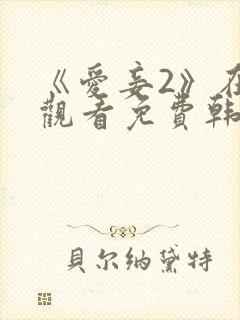 《愛妾2》在
觀看免費韓
貝尔纳黛特